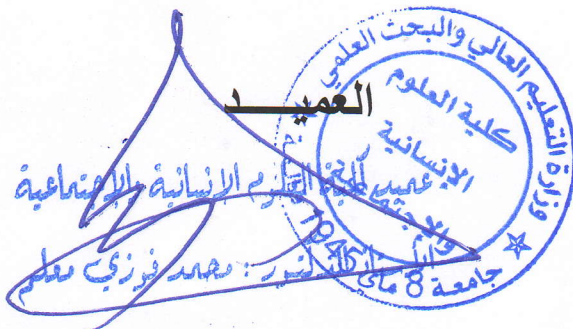 العميد
وزارة التعليم العالي والبحث العلمي
كلية العلوم
الإنسانية
والاجتماعية
جامعة 8 ماي 1945
عميد كلية العلوم الإنسانية والاجتماعية
الدكتور : محمد فوزي معلم